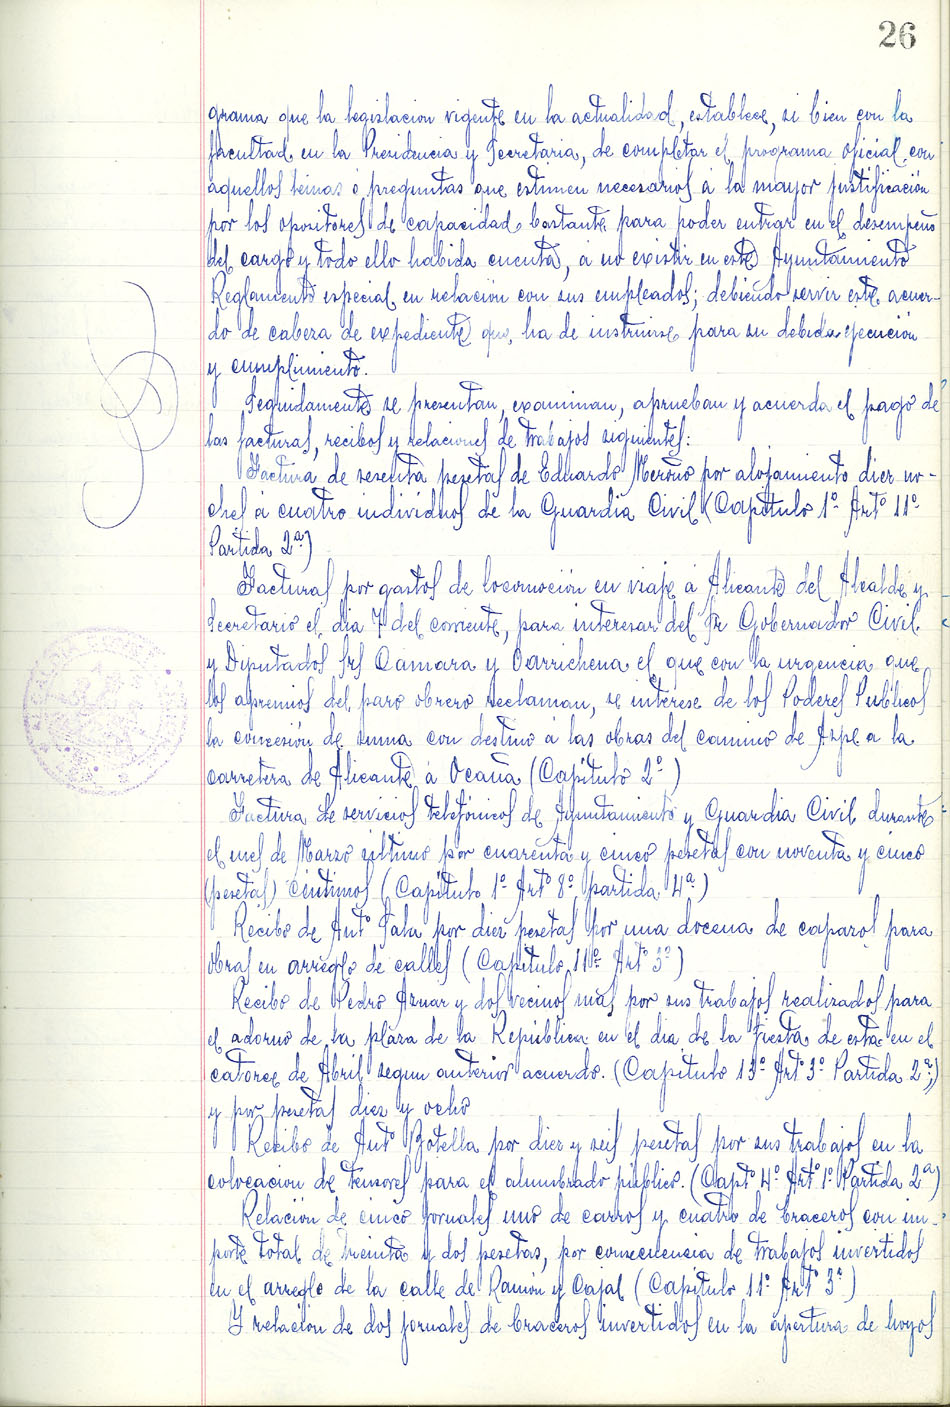 26
grama que la legislacion vigente en la actualidad, establece, si bien con la
facultad en la Presidencia y Secretaria, de completar el programa oficial con
aquellos temas o preguntas que estimen necesarios á la mayor justificación
por los opositores de capacidad bastante para poder entrar en el desempeño
del cargo y todo ello habida cuenta, a no existir en este Ayuntamiento
Reglamento especial en relación con sus empleados; debiendo servir este acuer-
do de cabeza de expediente que, ha de instruirse para su debida ejecución
y cumplimiento.
Seguidamente se presentan, examinan, aprueban y acuerda el pago de
las facturas, recibos y relaciones de trabajos siguientes:
Factura de sesenta pesetas de Eduardo Meroño por alojamiento diez no-
ches á cuatro individuos de la Guardia Civil (Capitulo 1º Artº 11º
Partida 2ª)
Facturas por gastos de locomoción en viaje á Alicante del Alcalde y
Secretario el dia 7 del corriente, para interesar del Sr Gobernador Civil
y Diputados Srs Cámara y el que con la urgencia que
los apremios del paro obrero reclaman, se interese de los Poderes Publicos
la concesión de suma con destino á las obras del camino de Aspe a la
carretera de Alicante á Ocaña (Capitulo 2º)
Factura de servicios telefónicos de Ayuntamiento y Guardia Civil durante
el mes de Marzo último por cuarenta y cinco pesetas con noventa y cinco
(pesetas) céntimos (Capitulo 1º Artº 8º partida 4ª)
Recibo de Antº por diez pesetas por una docena de capazos para
obras en arreglo de calles (Capitulo 11º Artº 3º)
Recibo de Pedro Aznar y dos vecinos mas por sus trabajos realizados para
el adorno de la plaza de la República en el dia de la fiesta de esta en el
catorce de Abril segun anterior acuerdo. (Capitulo 13º Artº 3º Partida 2ª)
y por pesetas diez y ocho
Recibo de Antº Botella por diez y seis pesetas por sus trabajos en la
colocacion de tensores para el alumbrado publico. (Captº 4º Artº 1º Partida 2ª)
Relación de cinco jornales uno de carros y cuatro de braceros con im-
porte total de treinta y dos pesetas, por consecuencia de trabajos invertidos
en el arreglo de la calle de Ramón y Cajal (Capitulo 11º Artº 3º)
Y relación de dos jornales de braceros invertidos en la apertura de hoyos